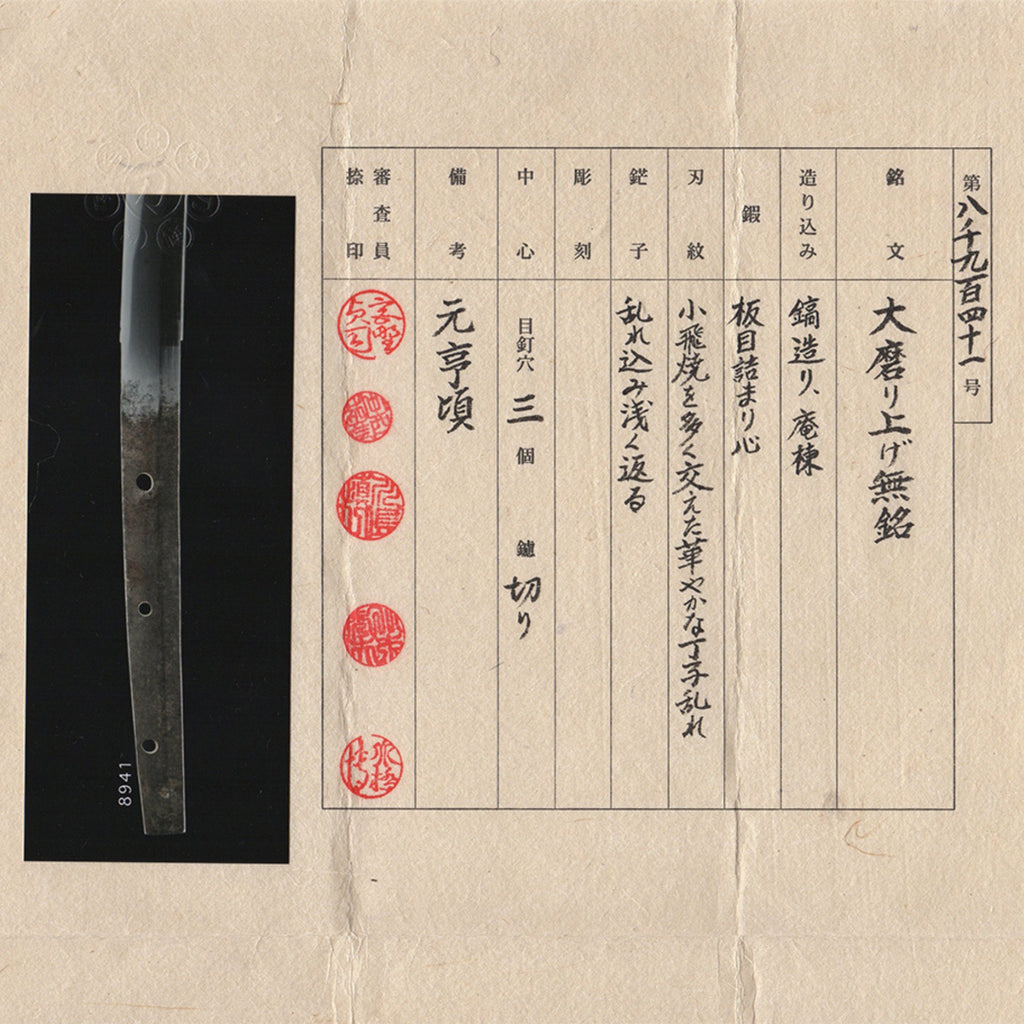 第八千九百四十一号
銘文
大磨り上げ無銘
造り込み
鎬造り、庵棟
鍛
板目詰まり心
刃紋
小飛焼を多く交えた華やかな丁子乱れ
鋩子
乱れ込み浅く返る
彫刻
中心
目釘穴 三 個 鑢 切り
備考
元亨頃
審査員
捺印
8941